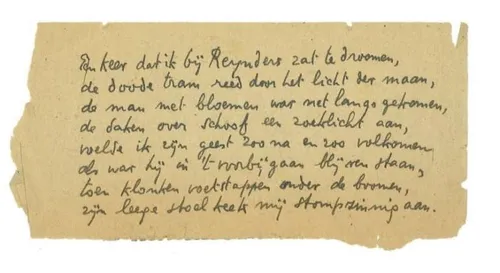 Een keer dat ik bij Reynders zat te droomen,
de doode tram reed door het licht der maan,
de man met bloemen was net langs gekomen,
de daken over schoof een zoeklicht aan,
voelde ik zijn geest zoo na en zoo volkomen
als was hij in 't voorbijgaan blijven staan,
toen klonken voetstappen onder de boomen,
zijn leege stoel keek mij stompzinnig aan.